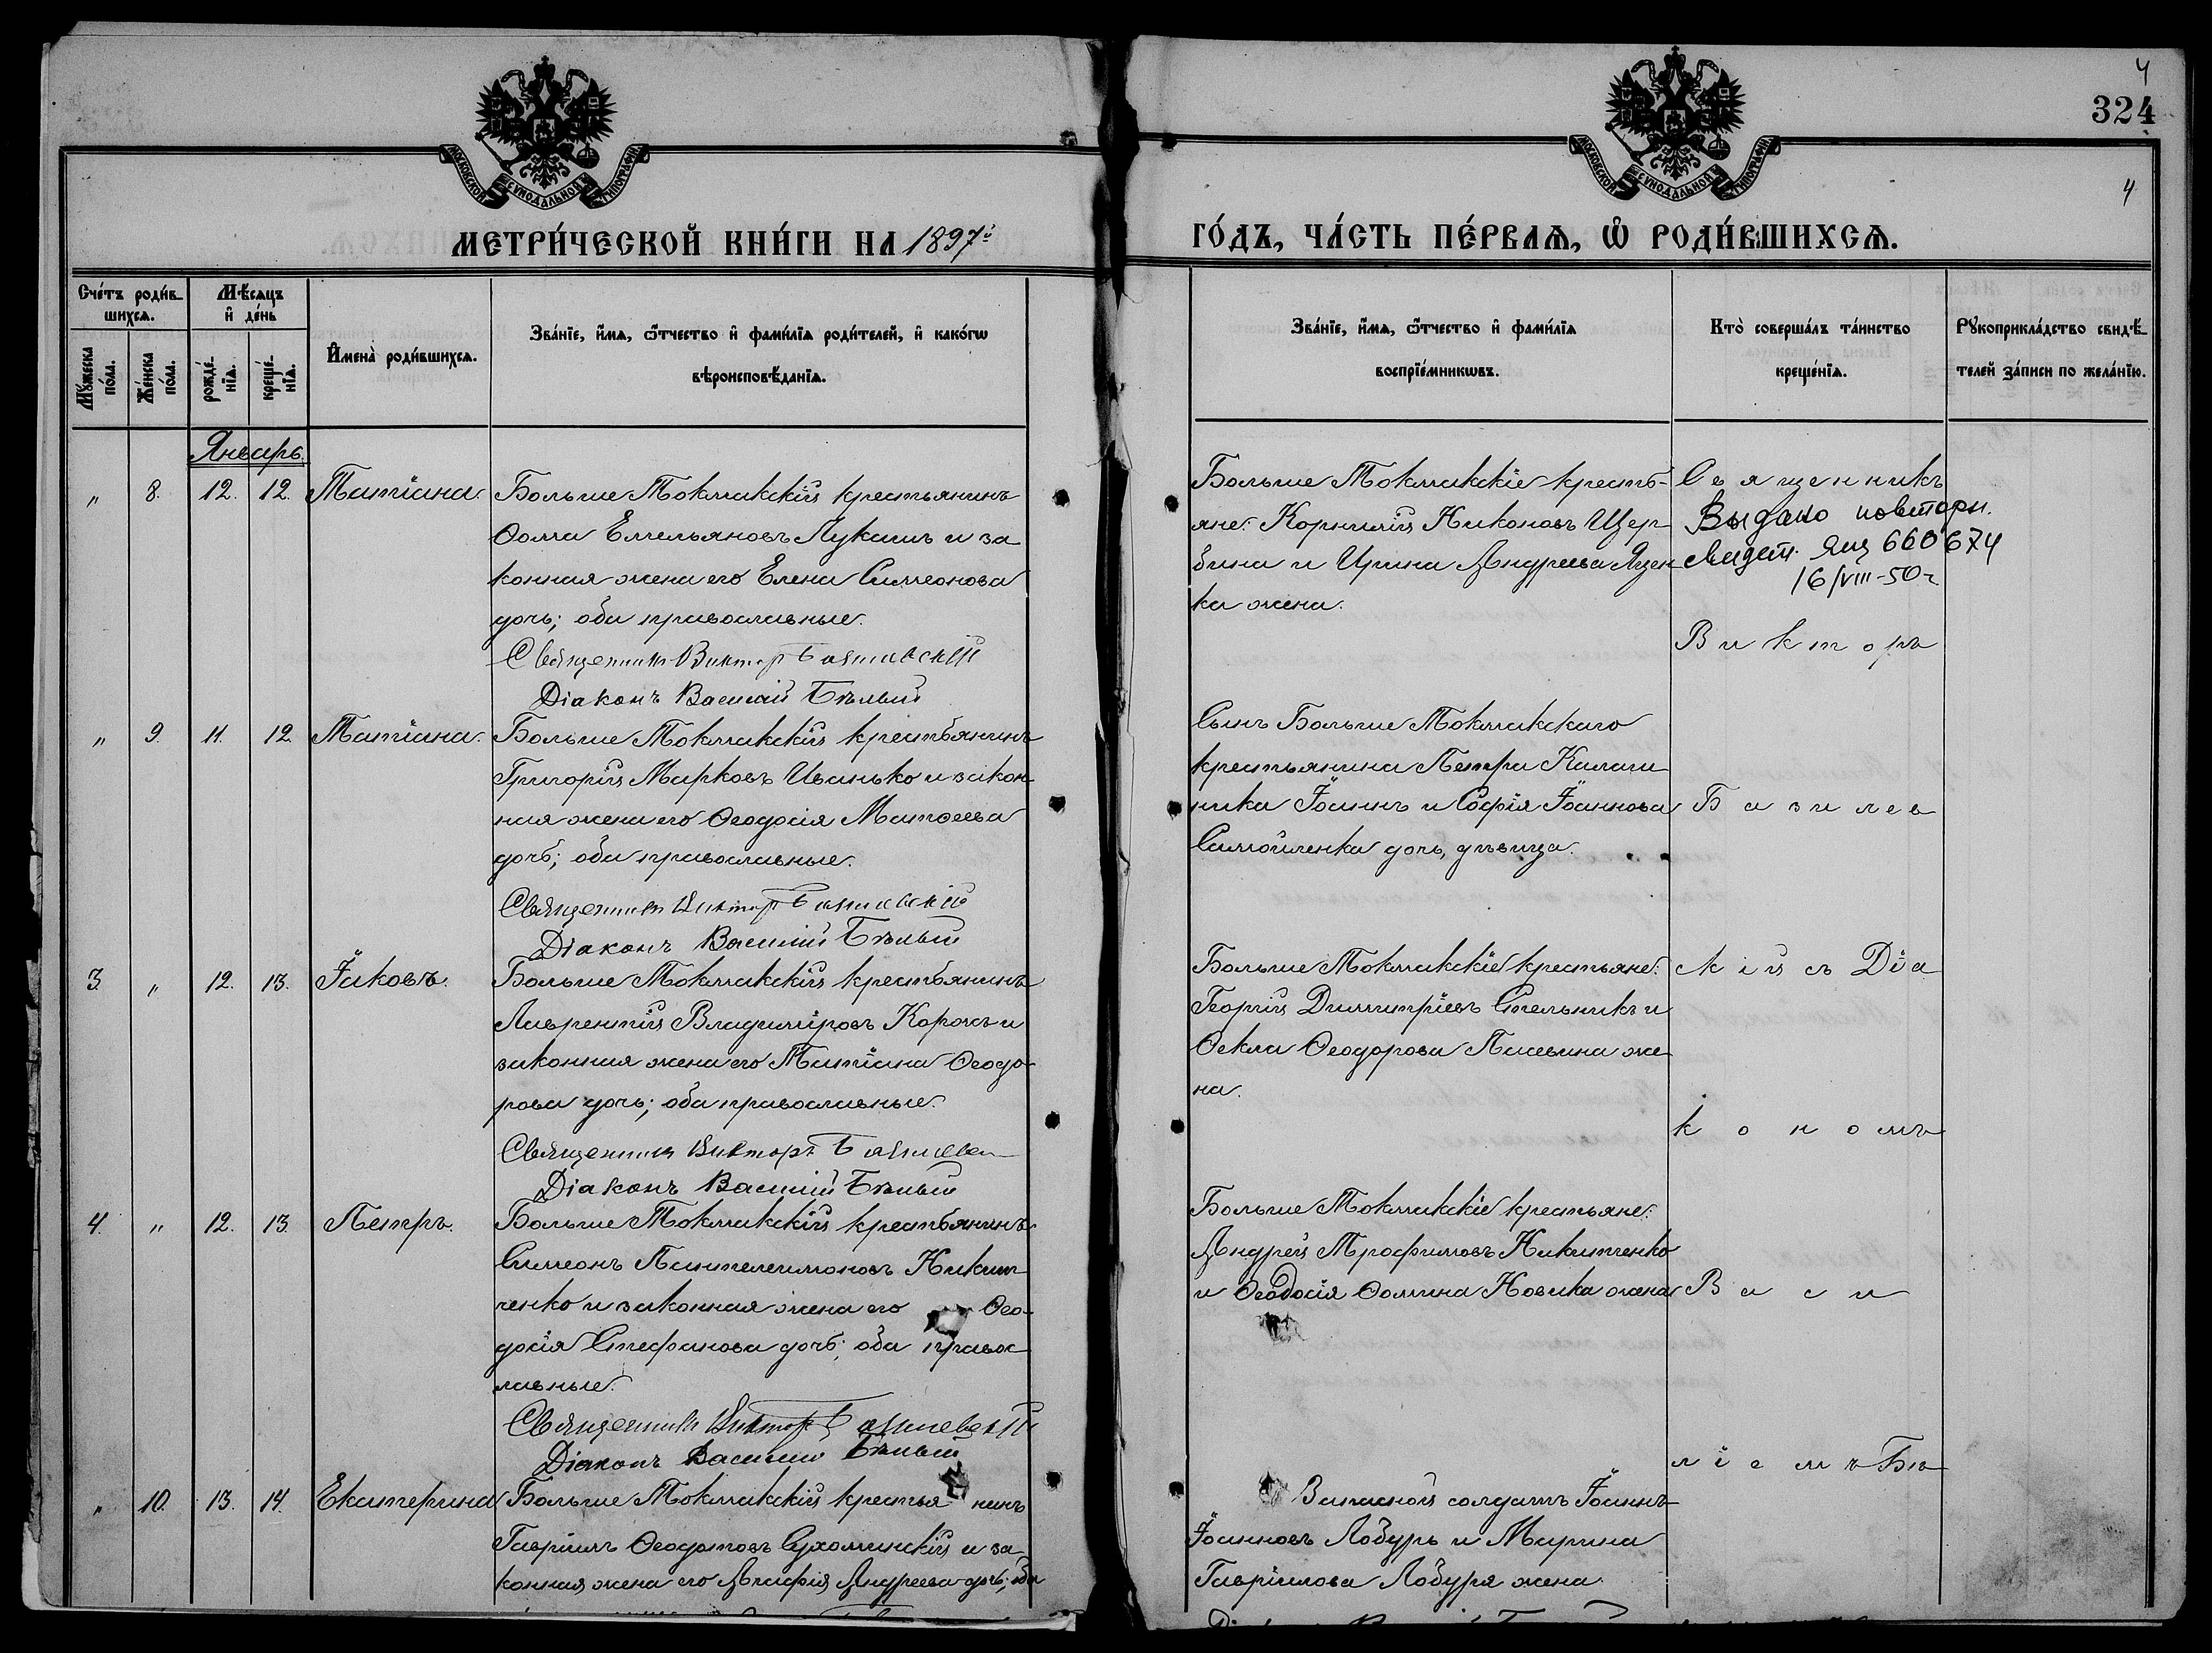 4
324
4
МОСКОВСКОЙ СѴНОДАЛЬНОЙ ТИПОГРАФІИ
МОСКОВСКОЙ СѴНОДАЛЬНОЙ ТИПОГРАФІИ
МЕТРИ́ЧЕСКОЙ КНИ́ГИ НА 1897й
ГО́ДЪ, ЧА́СТЬ ПЕ́РВАѦ, Ѡ РОДИ́ВШИХСѦ.
Сче́тъ роди́в-
шихсѧ.
Мѣ́сѧцъ
и҆ де́нь
Мꙋ́жеска
по́ла.
Же́нска
по́ла.
рожде́-
нїѧ.
креще́-
нїѧ.
И҆мена̀ роди́вшихсѧ.
Зва́нїе, и҆́мѧ, ѻ҆́тчество и҆ фами́лїѧ роди́телей, и҆ како́гѡ
вѣроисповѣ́данїѧ.
Зва́нїе, и҆́мѧ, ѻ҆́тчество и҆ фами́лїѧ
воспрїе́мникѡвъ.
Кто̀ соверша́лъ та́инство
креще́нїѧ.
Рꙋкоприкла́дство свидѣ́-
телей за́писи по жела́нїю.
Январь.
" 8. 12. 12. Татіана. Больше Токмакскій крестьянинъ
Ѳома Емельяновъ Лукашъ и за
конная жена его Елена Симеонова
дочь; оба православные.
Священникъ Викторъ Базилевскій
Діаконъ Василій Бѣлый
Больше Токмакскіе кресть-
яне: Корнилій Никоновъ Щер-
бина и Ирина Андреева Яцен-
ка жена.
Священникъ
Выдано повторн.
свидет. ЯЦ 660674
16/VIII-50 г
Викторъ
" 9. 11. 12. Татіана. Больше Токмакскій крестьянинъ
Григорій Марковъ Иванько и закон
ная жена его Ѳеодосія Матѳеева
дочь; оба православные.
Священникъ Викторъ Базилевскій
Діаконъ Василій Бѣлый
Сынъ Больше Токмакскаго
крестьянина Петра Калаш
ника Іоаннъ и Софія Іоаннова
Самойленка дочь, дѣвица.
Базилев
3 " 12. 13. Іаковъ. Больше Токмакскій крестьянинъ
Лаврентій Владиміровъ и
законная жена его Татіана Ѳеодо-
рова дочь; оба православные.
Священникъ Викторъ
Діаконъ Василій Бѣлый
Больше Токмакскіе крестьяне:
Георгій Димитріевъ Стельникъ и
Ѳекла Ѳеодорова же
на.
скій съ Діа
кономъ
4. " 12. 13. Петръ. Больше Токмакскій крестьянинъ
Симеонъ Пантелеимоновъ Никит
ченко и законная жена его Ѳео-
досія Стефанова дочь; оба правос
лавные.
Священникъ Викторъ Базилевскій
Діаконъ Василій Бѣлый
Больше Токмакскіе крестьяне:
Андрей Трофимовъ Никитченко
и Ѳеодосія Ѳомина Новика жена
Васи
ліемъ Бѣ
" 10. 13. 14. Екатерина Больше Токмакскій крестья нинъ
Гавріилъ Ѳеодотовъ Сухомлинскій и за
конная жена его Агафія Андреева дочь; оба
Запасной солдатъ Іоаннъ
Іоанновъ Лобуръ и Марина
Гавріилова Лобуря жена.